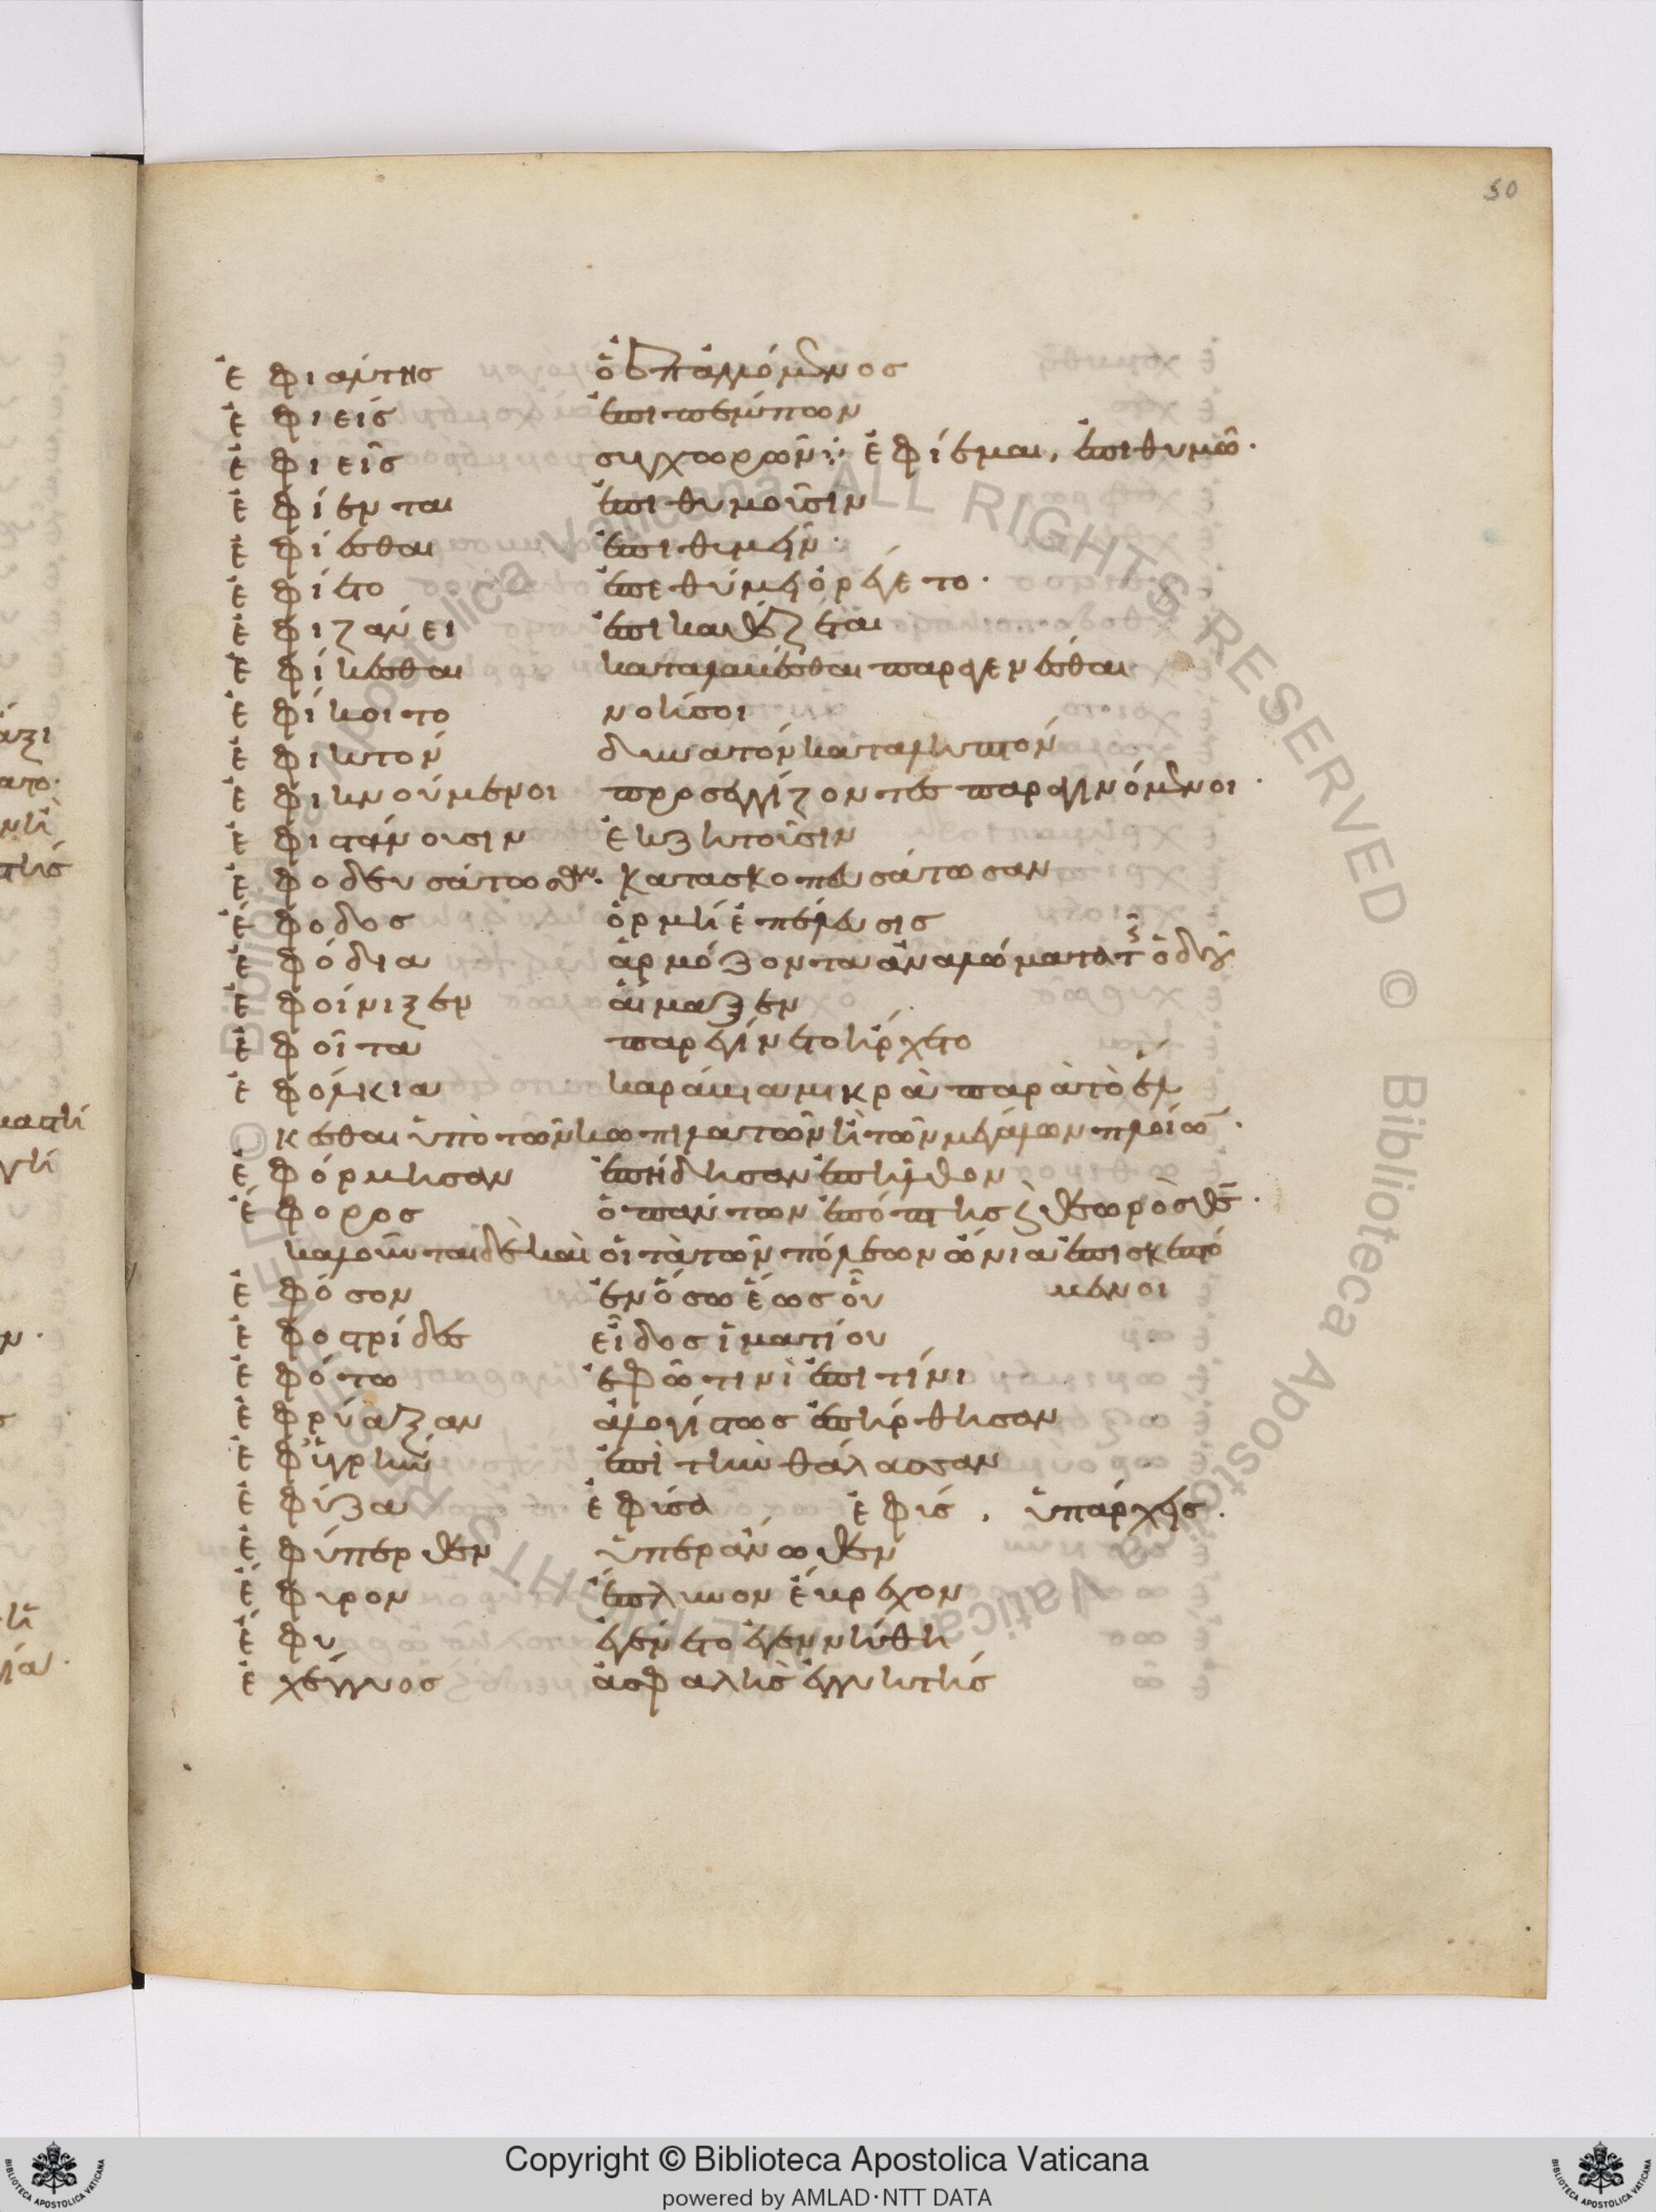 50
ἐφιάλτης ὁ ἐπαλλόμενος
ἐφιείς ἐπιπέμπων
ἐφιείς συγχωρῶν: ἐφίεμαι, ἐπιθυμῶ.
ἐφίενται ἐπιθυμοῦσιν
ἐφίεσθαι ἐπιθυμεῖν.
ἐφίετο ἐπεθύμει ὀρέγετο.
ἐφιζάνει ἐπικαθέζεται
ἐφικέσθαι καταλαβέσθαι παραγενέσθαι
ἐφίκοιτο νοήσοι
ἐφικτόν δυνατόν καταληπτόν
ἐφικνούμενοι προσεγγίζοντες παραγινόμενοι.
ἐφιστάνουσιν ἐκζητοῦσιν
ἐφοδευσάτωσαν. κατασκοπευσάτωσαν
ἔφοδος ὁρμή ἐπέλευσις
ἐφόδια ἁρμόζοντα ἀναλώματα τῆς ὁδοῦ
ἐφοίνιξεν αἵμαξεν
ἐφοίτα παρεγίνετο ἤρχετο
ἐφόλκια καράβια μικρὰ παρὰ τὸ ἕλ
κεσθαι ὑπὸ τῶν κωπηλατῶν ἢ τῶν μεγάλων πλοίων.
ἐφόρμησαν ἐπήδησαν ἐπῆλθον
ἔφορος ὁ πάντων ἐπόπτης καὶ θεωρὸς θεός.
καλοῦνται δὲ καὶ οἱ τὰ τῶν πόλεων ὤνια ἐπισκεπτό
ἐφόσον ἐν ὅσω ἕως οὗ μενοι
ἐφεστρίδες εἶδος ἱματίου
ἐφότω ἐφ ᾧ τινὶ ἐπὶ τίνι
ἐφρύαξαν ἀλογίστως ἐπήρθησαν
ἐφ ὑγρήν ἐπὶ τὴν θάλασσαν
ἔφυζα ἔφυσα ἔφυς, ὑπάρχεις.
ἐφύπερθεν ὑπεράνωθεν
ἔφυρον ἔπλυνον ἔβρεχον
ἔφυ ἐγένετο ἐγεννήθη
ἐχέγγυος ἀσφαλὴς ἐγγυητής
Copyright © Biblioteca Apostolica Vaticana
powered by AMLAD·NTT DATA